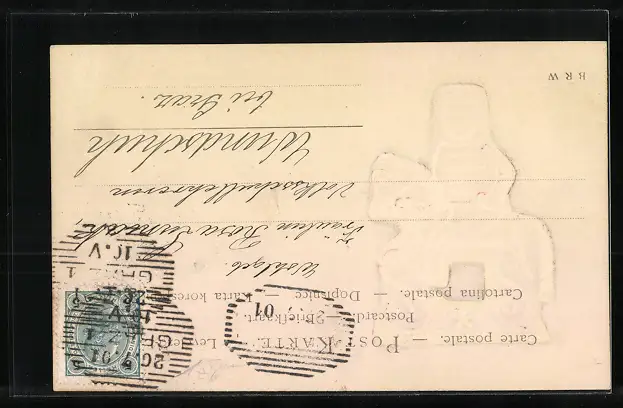 Carte postale. — POSTKARTE. — Levelez
Postcard. — Briefkaart.
Cartolina postale. — Dopisnice. — Karta kores
Wohlgeb.
Fräulein Rosa
Volksschullehrerin
Wundschuh
bei Graz.
B R W
GRAZ 1
10.V
01